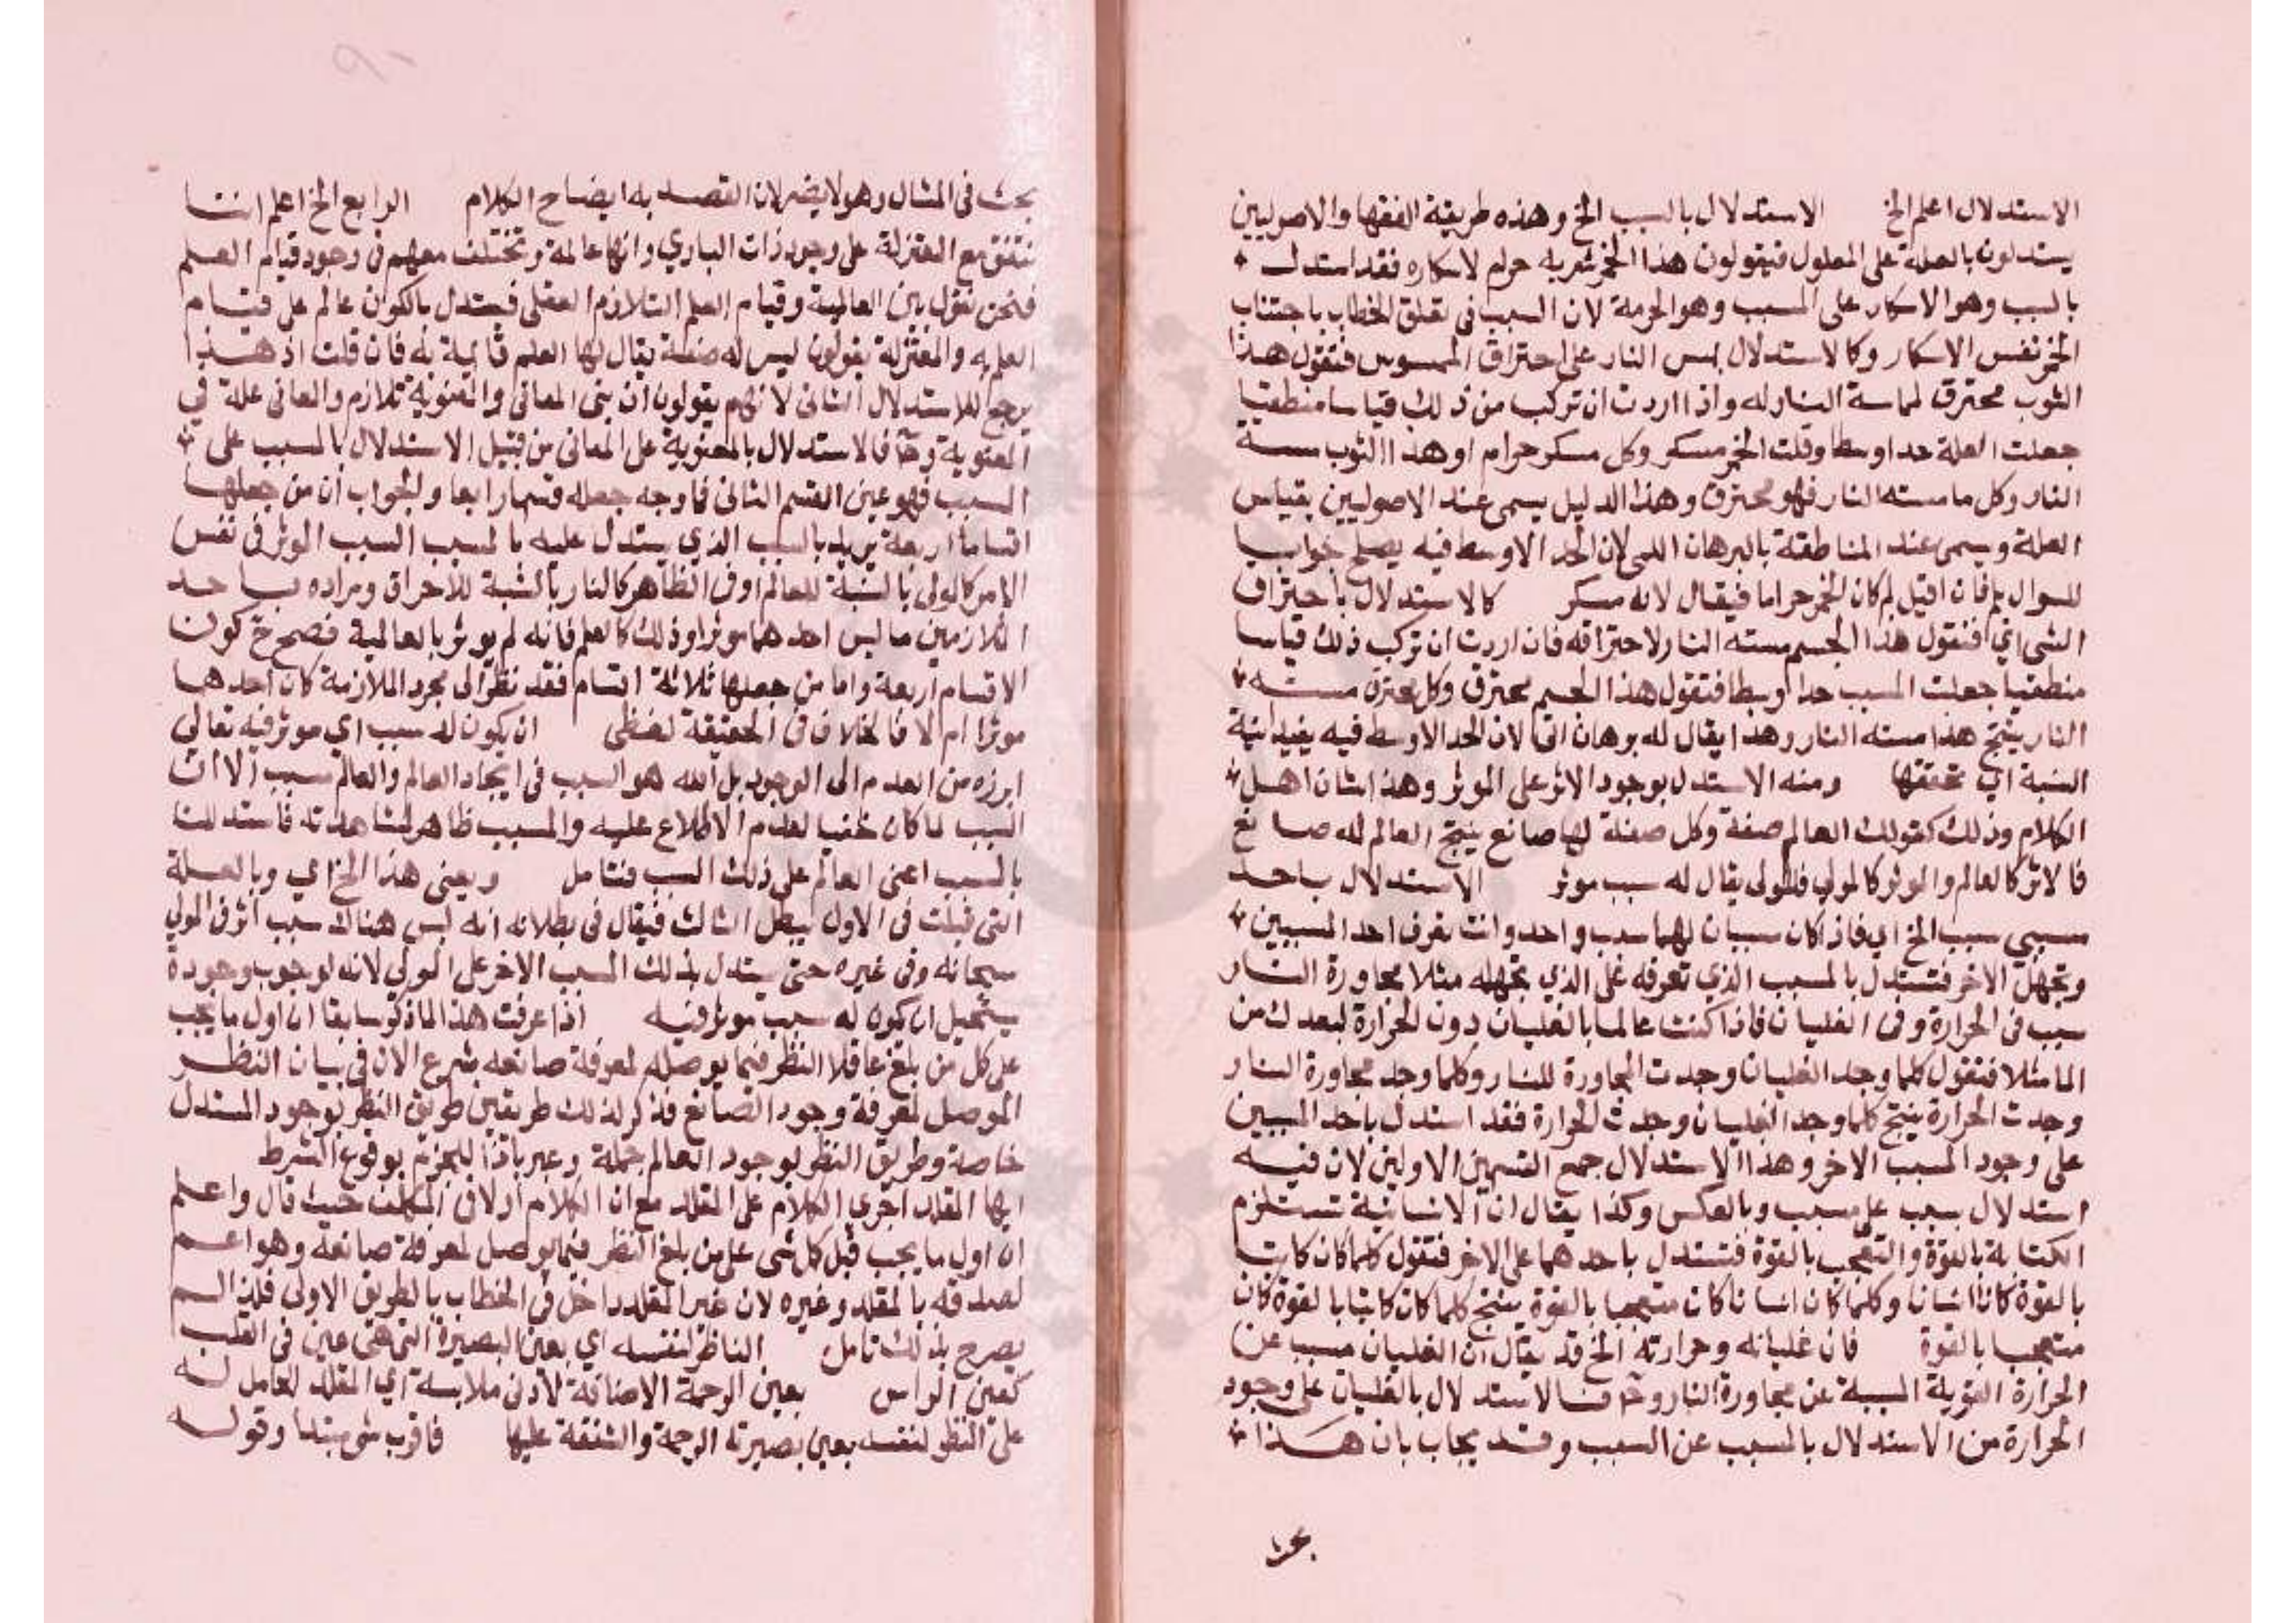 الاستدلال اعلم الخ الاستدلال بالسبب الخ وهذه طريقة الفقها والاصوليين
يستدلون بالعلة على المعلول فيقولون هذا الخمر شربه حرام لاسكاره فقد استدل
بالسبب وهو الاسكار على المسبب وهو الحرمة لان السبب فى تعلق الخطاب باجتناب
الخمر نفس الاسكار وكالاستدلال بمس النار على احتراق الممسوس فتقول هذا
الثوب محترق لماسة النار له واذا اردت ان تركب من ذلك قياسا منطقيا
جعلت العلة حدا وسطا وقلت الخمر مسكر وكل مسكر حرام او هذا الثوب مسته
النار وكل ما مسته النار فهو محترق وهذا الدليل يسمى عند الاصوليين بقياس
العلة ويسمى عند المناطقة بالبرهان اللمى لان الحد الاوسط فيه يصلح جوابا
للسوال بلم فان اقيل لم كان الخمر حراما فيقال لانه مسكر كالاستدلال باحتراق
الشى اي فنقول هذا الجسم مسته النار لاحتراقه فان اردت ان تركب ذلك قياسا
منطقيا جعلت المسبب حدا وسطا فتقول هذا الجسم محترق وكل محترق مسته
النار ينتج هذا مسته النار وهذا يقال له برهان انى لان الحد الاوسط فيه يفيد انية
النسبة اي تحققها ومنه الاستدل بوجود الاثر على الموثر وهذا شان اهل
الكلام وذلك كقولك العالم صفة وكل صفة لها صانع ينتج العالم له صانع
فالاثر كالعالم والموثر كالمولي فالمولى يقال له سبب موثر الاستدلال باحد
مسببي سبب الخ اي فاذا كان سببان لهما سبب واحد وانت تعرف احد المسببين
وتجهل الاخر فتستدل بالمسبب الذي تعرفه على الذي تجهله مثلا مجاورة النار
سبب فى الحرارة وفى الغليان فاذا كنت عالما بالغليان دون الحرارة لبعدك من
الما مثلا فتقول كلما وجد الغليان وجدت المجاورة للنار وكلما وجد مجاورة النار
وجدت الحرارة ينتج كلما وجد الغليان وجدت الحرارة فقد استدل باحد المسببين
على وجود المسبب الاخر وهذا الاستدلال جمع القسمين الاولين لان فيه
استدلال بسبب على مسبب وبالعكس وكذا يقال ان الانسانية تستلزم
الكتابة بالقوة والتعجب بالقوة فتستدل باحدهما على الاخر فتقول كلما كان كاتبا
بالقوة كان انسانا وكلما كان انسانا كان متعجبا بالقوة ينتج كلما كان كاتبا بالقوة كان
متعجبا بالقوة فان غليانه وحرارته الخ قد يقال ان الغليان مسبب عن
الحرارة القوية المسببة عن مجاورة النار وح فالاستدلال بالغليان على وجود
الحرارة من الاستدلال بالمسبب عن السبب وقد يجاب بان هذا
بحث فى المثال وهو لا يضر لان القصد به ايضاح الكلام الرابع الخ اعلم اننا
نتفق مع المعتزلة على وجود ذات الباري وانها عالمة ونختلف معهم فى وجود قيام العلم
فنحن نقول بين العالمية وقيام العلم التلازم العقلى فيستدل بالكون عالم على قيام
العلم به والمعتزلة يقولون ليس له صفة يقال لها العلم قائمة به فان قلت ان هذا
يرجع للاستدلال الثانى لانهم يقولون ان بنى المعانى والمعنوية تلازم والمعانى علة في
المعنوية وح فالاستدلال بالمعنوية على المعانى من قبيل الاستدلال بالمسبب على
السبب فهو عين القسم الثانى فما وجه جعله قسما رابعا والجواب ان من جعلها
اقساما اربعة يريد بالسبب الذي يستدل عليه بالمسبب السبب الموثر فى نفس
الامر كالمولى بالنسبة للعالم او فى الظاهر كالنار بالنسبة للاحراق ومراده باحد
التلازمين ما ليس احدهما موثرا وذلك كالعلم فانه لم يوثر بالعالمية فصح ح كون
الاقسام اربعة واما من جعلها ثلاثة اقسام فقد نظر الى مجرد الملازمة كان احدهما
موثرا ام لا فالخلاف فى الحقيقة لفظى ان يكون له سبب اي موثر فيه تعالى
ابرزه من العدم الى الوجود بل الله هو السبب فى ايجاد العالم والعالم مسبب الا ان
السبب لما كان خفيا لعدم الاطلاع عليه والمسبب ظاهر لمشاهدته فاستدللنا
بالمسبب اعنى العالم على ذلك السبب فتامل ويعنى هذا الخ اي وبالعلة
التى قيلت فى الاول يبطل الثالث فيقال فى بطلانه انه ليس هناك سبب اثر فى المولى
سبحانه وفى غيره حتى يستدل بذلك المسبب الاخر على المولى لانه لوجوب وجوده
يستحيل ان يكون له سبب موثر فيه اذا عرفت هذا لما ذكر سابقا ان اول ما يجب
على كل من بلغ عاقلا النظر فيما يوصله لمعرفة صانعه شرع الان فى بيان النظر
الموصل لمعرفة وجود الصانع فذكر لذلك طريقين طريق النظر بوجود المستدل
خاصة وطريق النظر بوجود العالم جملة وعبر باذا للجزم بوقوع الشرط
ايها المقلد اجرى الكلام على المقلد مع ان الكلام اولا فى المكلف حيث قال واعلم
ان اول ما يجب قبل كل شى على من بلغ النظر فيما يوصل لمعرفة صانعه وهو اعم
لصدقه بالمقلد وغيره لان غير المقلد داخل فى الخطاب بالطريق الاولى فلذا لم
يصرح بذلك تامل الناظر لنفسه اي بعين البصيرة التى هى عين فى القلب
كعين الراس بعين الرحمة الاضافة لادنى ملابسة اي المقلد الحامل له
على النظر لنفسه بعين بصيرته الرحمة والشفقة عليها فاقرب شى مبتدا وقوله